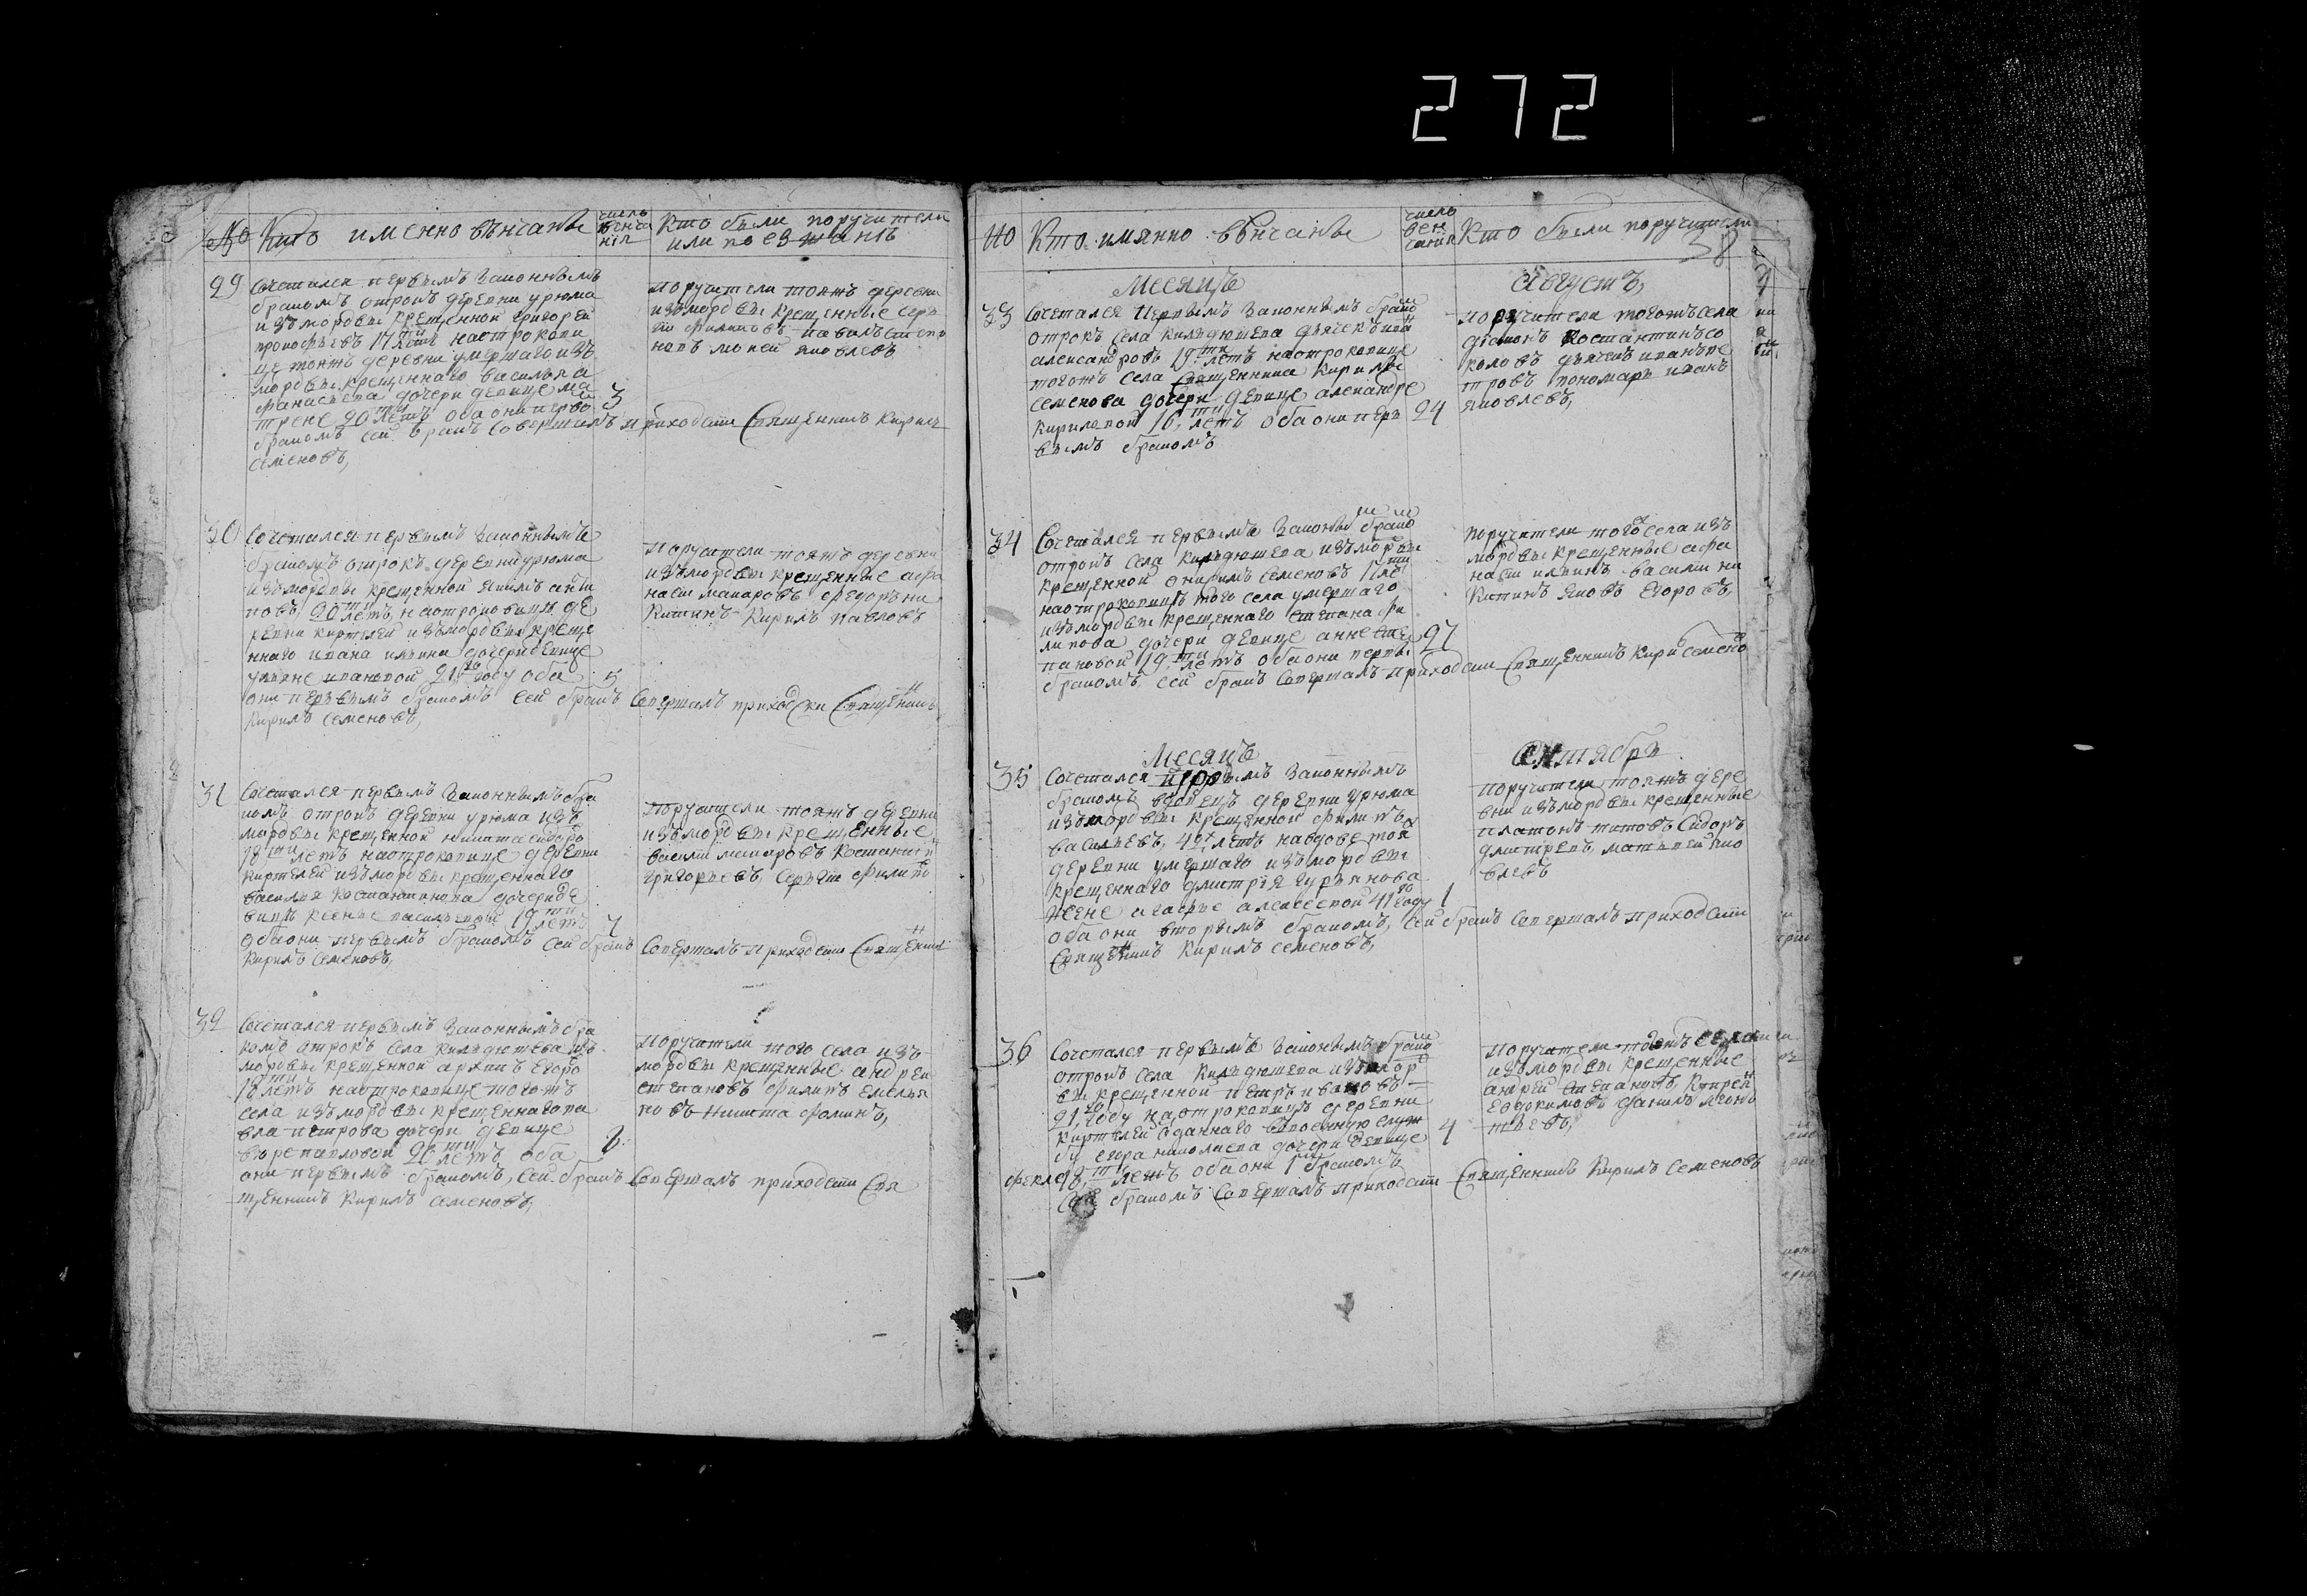 272
№ Кто именно венчаны
число венчания
Кто были поручители
или поезжаня
29 Сочетался первымъ законнымъ
бракомъ отрокъ деревни урюма
изъ мордвы крещенной григорей
прокофьевъ 17 летъ на отрокови
це тоежъ деревни умершаго изъ
мордвы крещеннаго василья а
фанасьева дочери девице ма
трене 20ти летъ оба они первы
бракомъ сей бракъ совершалъ приходски священникъ кирилъ
семеновъ,
3
поручители тоежъ деревни
изъ мордвы крещенные серъ
ги филиповъ павелъ степа
новъ мокей яковлевъ
30 Сочетался первымъ законнымъ
бракомъ отрокъ деревни урюма
изъ мордвы крещенной якимъ анти
повъ 20ти летъ, на отроковице де
ревни киртелей изъ мордвы креще
ннаго ивана ильина дочери девице
ульяне ивановой 21го году оба
они первымъ бракомъ сей бракъ совершалъ приходски священникъ
кирилъ семеновъ,
5
поручители тоежъ деревни
изъ мордвы крещенные афа
наси макаровъ федоръ ни
китинъ кирилъ павловъ
31 Сочетался первымъ законнымъ бра
комъ отрокъ деревни урюма изъ
мордвы крещенной никита сидоро
18ти летъ на отроковице деревни
киртелей изъ мордвы крещеннаго
василья костантинова дочери де
вице ксенье васильевой 19ти летъ
оба они первымъ бракомъ сей бракъ совершалъ приходски священникъ
кирилъ семеновъ,
7
поручители тоежъ деревни
изъ мордвы крещенные
васили макаровъ костантий
григорьевъ, серьги филипо
32 Сочетался первымъ законнымъ бра
комъ отрокъ села кильдюшева изъ
мордвы крещенной архипъ егоро
18ти летъ на отроковице тогожъ
села изъ мордвы крещеннаго па
вла петрова дочери девице
вере павловой 20ти летъ оба
они первымъ бракомъ, сей бракъ совершалъ приходски свя
щенникъ кирилъ семеновъ,
8
поручители того села изъ
мордвы крещенные андреи
степановъ филипъ емелья
новъ никита фоминъ,
но Кто имянно венчаны
число венчания
Кто были поручители
38
Месяцъ Августъ,
33 Сочетался первымъ законнымъ брако
отрокъ села кильдюшева дьячекъ ива
александровъ 19ти летъ на отроковице
тогожъ села священника кирилы
семенова дочери девице александре
кириловой 16,ти летъ оба они пер
вымъ бракомъ
24
поручители тогожъ села
дьяконъ костантинъ со
коловъ дьячекъ иванъ пе
тровъ пономарь иванъ
яковлевъ,
34 Сочетался первымъ законны брако
отрокъ села кильдюшева изъ мордвы
крещенной онисимъ семеновъ ле
на отроковице того села умершаго
изъ мордвы крещеннаго степана фи
липова дочери девице анне сте
пановой 19,ти летъ оба они первы
бракомъ сей бракъ совершалъ приходски священникъ кири семено
27
поручители того села изъ
мордвы крещенные афа
наси ильинъ васили ни
китинъ яковъ егоровъ,
Месяцъ Сентябрь
35 Сочетался первымъ законнымъ
бракомъ вдовецъ деревни урюма
изъ мордвы крещенной филипъ
васильевъ, 42х летъ на вдове той
деревни умершаго изъ мордвы
крещеннаго дмитрия гурьянова
жене агафье алексеевой 41го году
оба они вторымъ бракомъ, сей бракъ совершалъ приходски
священникъ кирилъ семеновъ,
1
поручители тоежъ дере
вни изъ мордвы крещенные
платонъ титовъ сидоръ
дмитревъ, матвеи яко
влевъ
36 Сочетался первымъ законымъ брако
отрокъ села кильдюшева изъ мор
вы крещенной петръ ивановъ
21,го году на отроковице деревни
киртелей отданнаго в военную служ
бу егора николаева дочери девице
фекле 18,ти летъ оба они 1 бракомъ
сей бракомъ совершалъ приходски священникъ кирилъ семеновъ
4
поручители тогожъ села
изъ мордвы крещенные
андреи степановъ,
евдокимовъ данилъ леон
тьевъ,